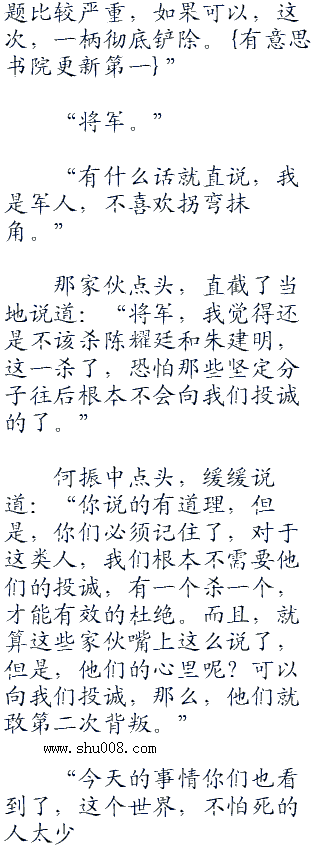 题比较严重，如果可以，这
次，一柄彻底铲除。{有意思
书院更新第一}”
“将军。”
“有什么话就直说，我
是军人，不喜欢拐弯抹
角。”
那家伙点头，直截了当
地说道：“将军，我觉得还
是不该杀陈耀廷和朱建明，
这一杀了，恐怕那些坚定分
子往后根本不会向我们投诚
的了。”
何振中点头，缓缓说
道：“你说的有道理，但
是，你们必须记住了，对于
这类人，我们根本不需要他
们的投诚，有一个杀一个，
才能有效的杜绝。而且，就
算这些家伙嘴上这么说了，
但是，他们的心里呢？可以
向我们投诚，那么，他们就
敢第二次背叛。”
www.shu008.com
“今天的事情你们也看
到了，这个世界，不怕死的
人太少